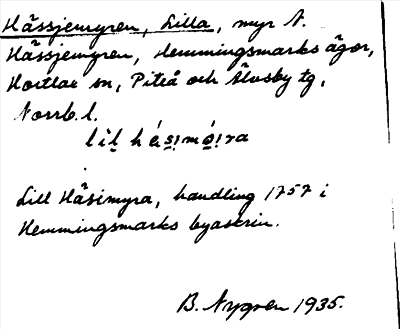 Hässjemyren, Lilla, myr N.
Hässjemyren, Hemmingsmarks ägor,
Hortlax sn, Piteå och Älvsby tg,
Norrb. l.
Lill Häsimyra, handling 1757 i
Hemmingsmarks byaskrin.
B. Nygren 1935.